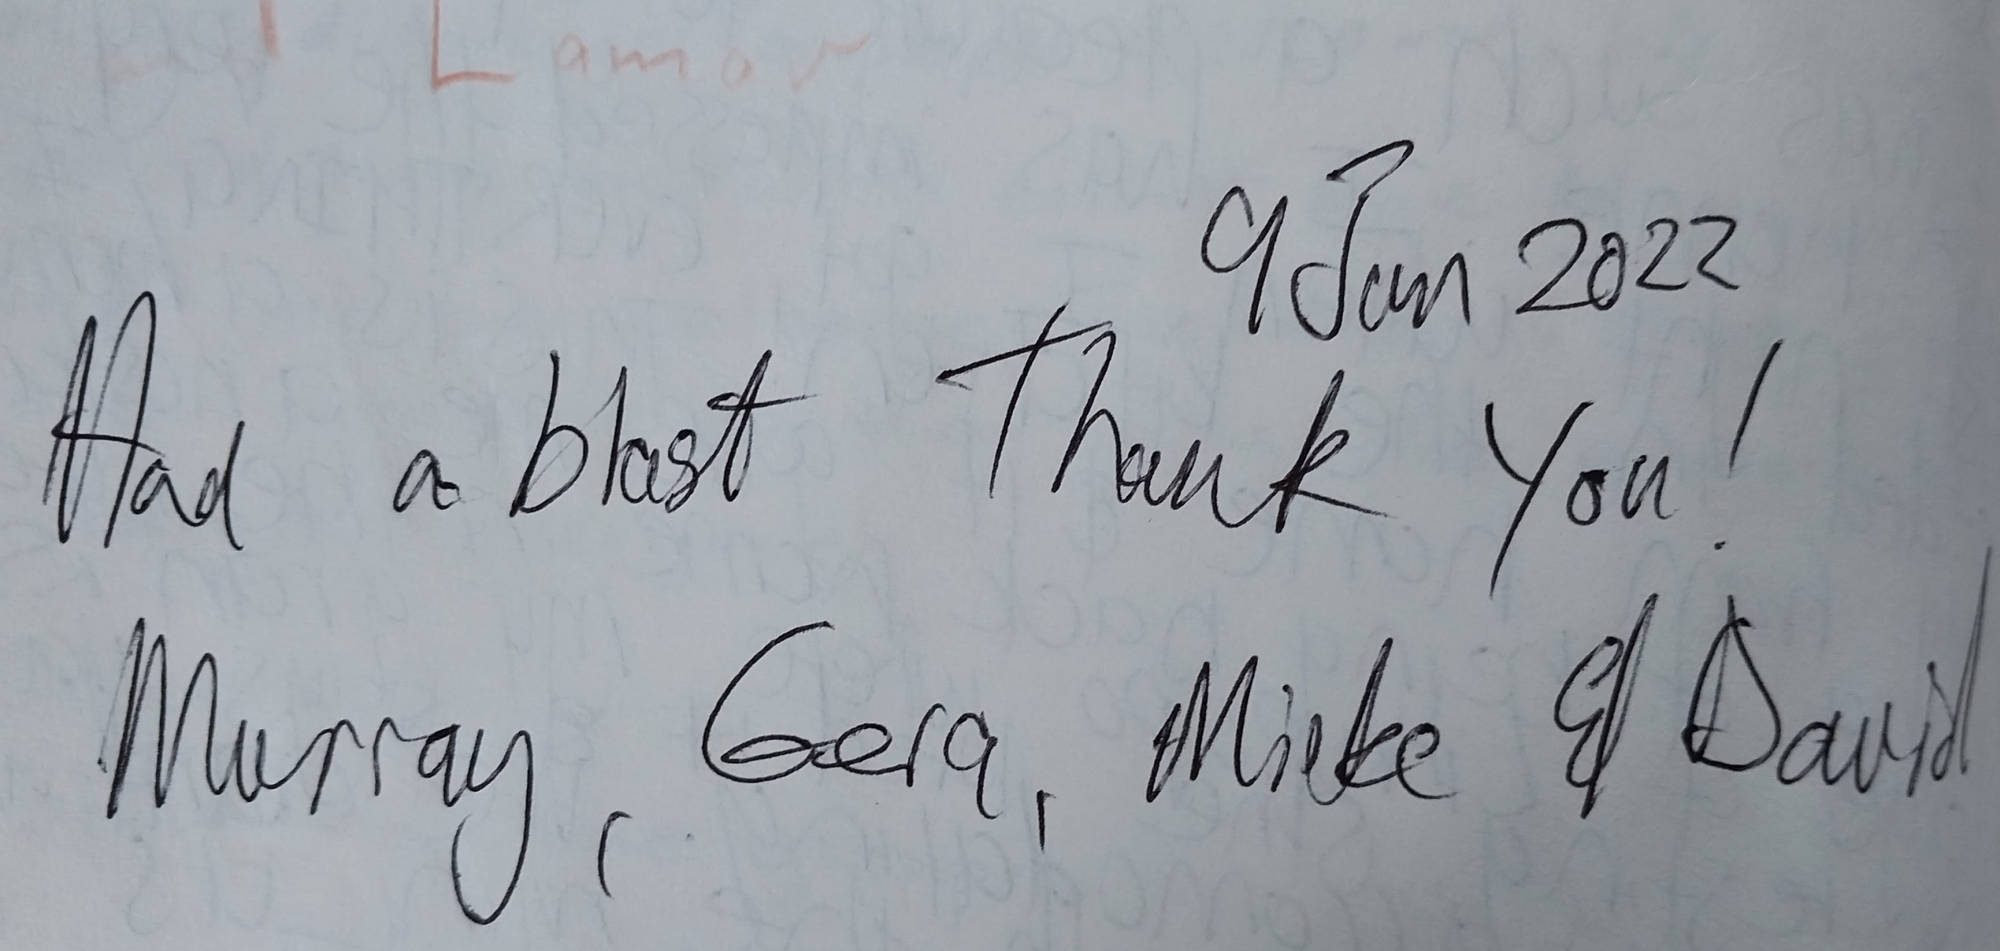 Lamar
9 Jan 2022
Had a blast Thank You!
Murray, Gera, Mieke & David